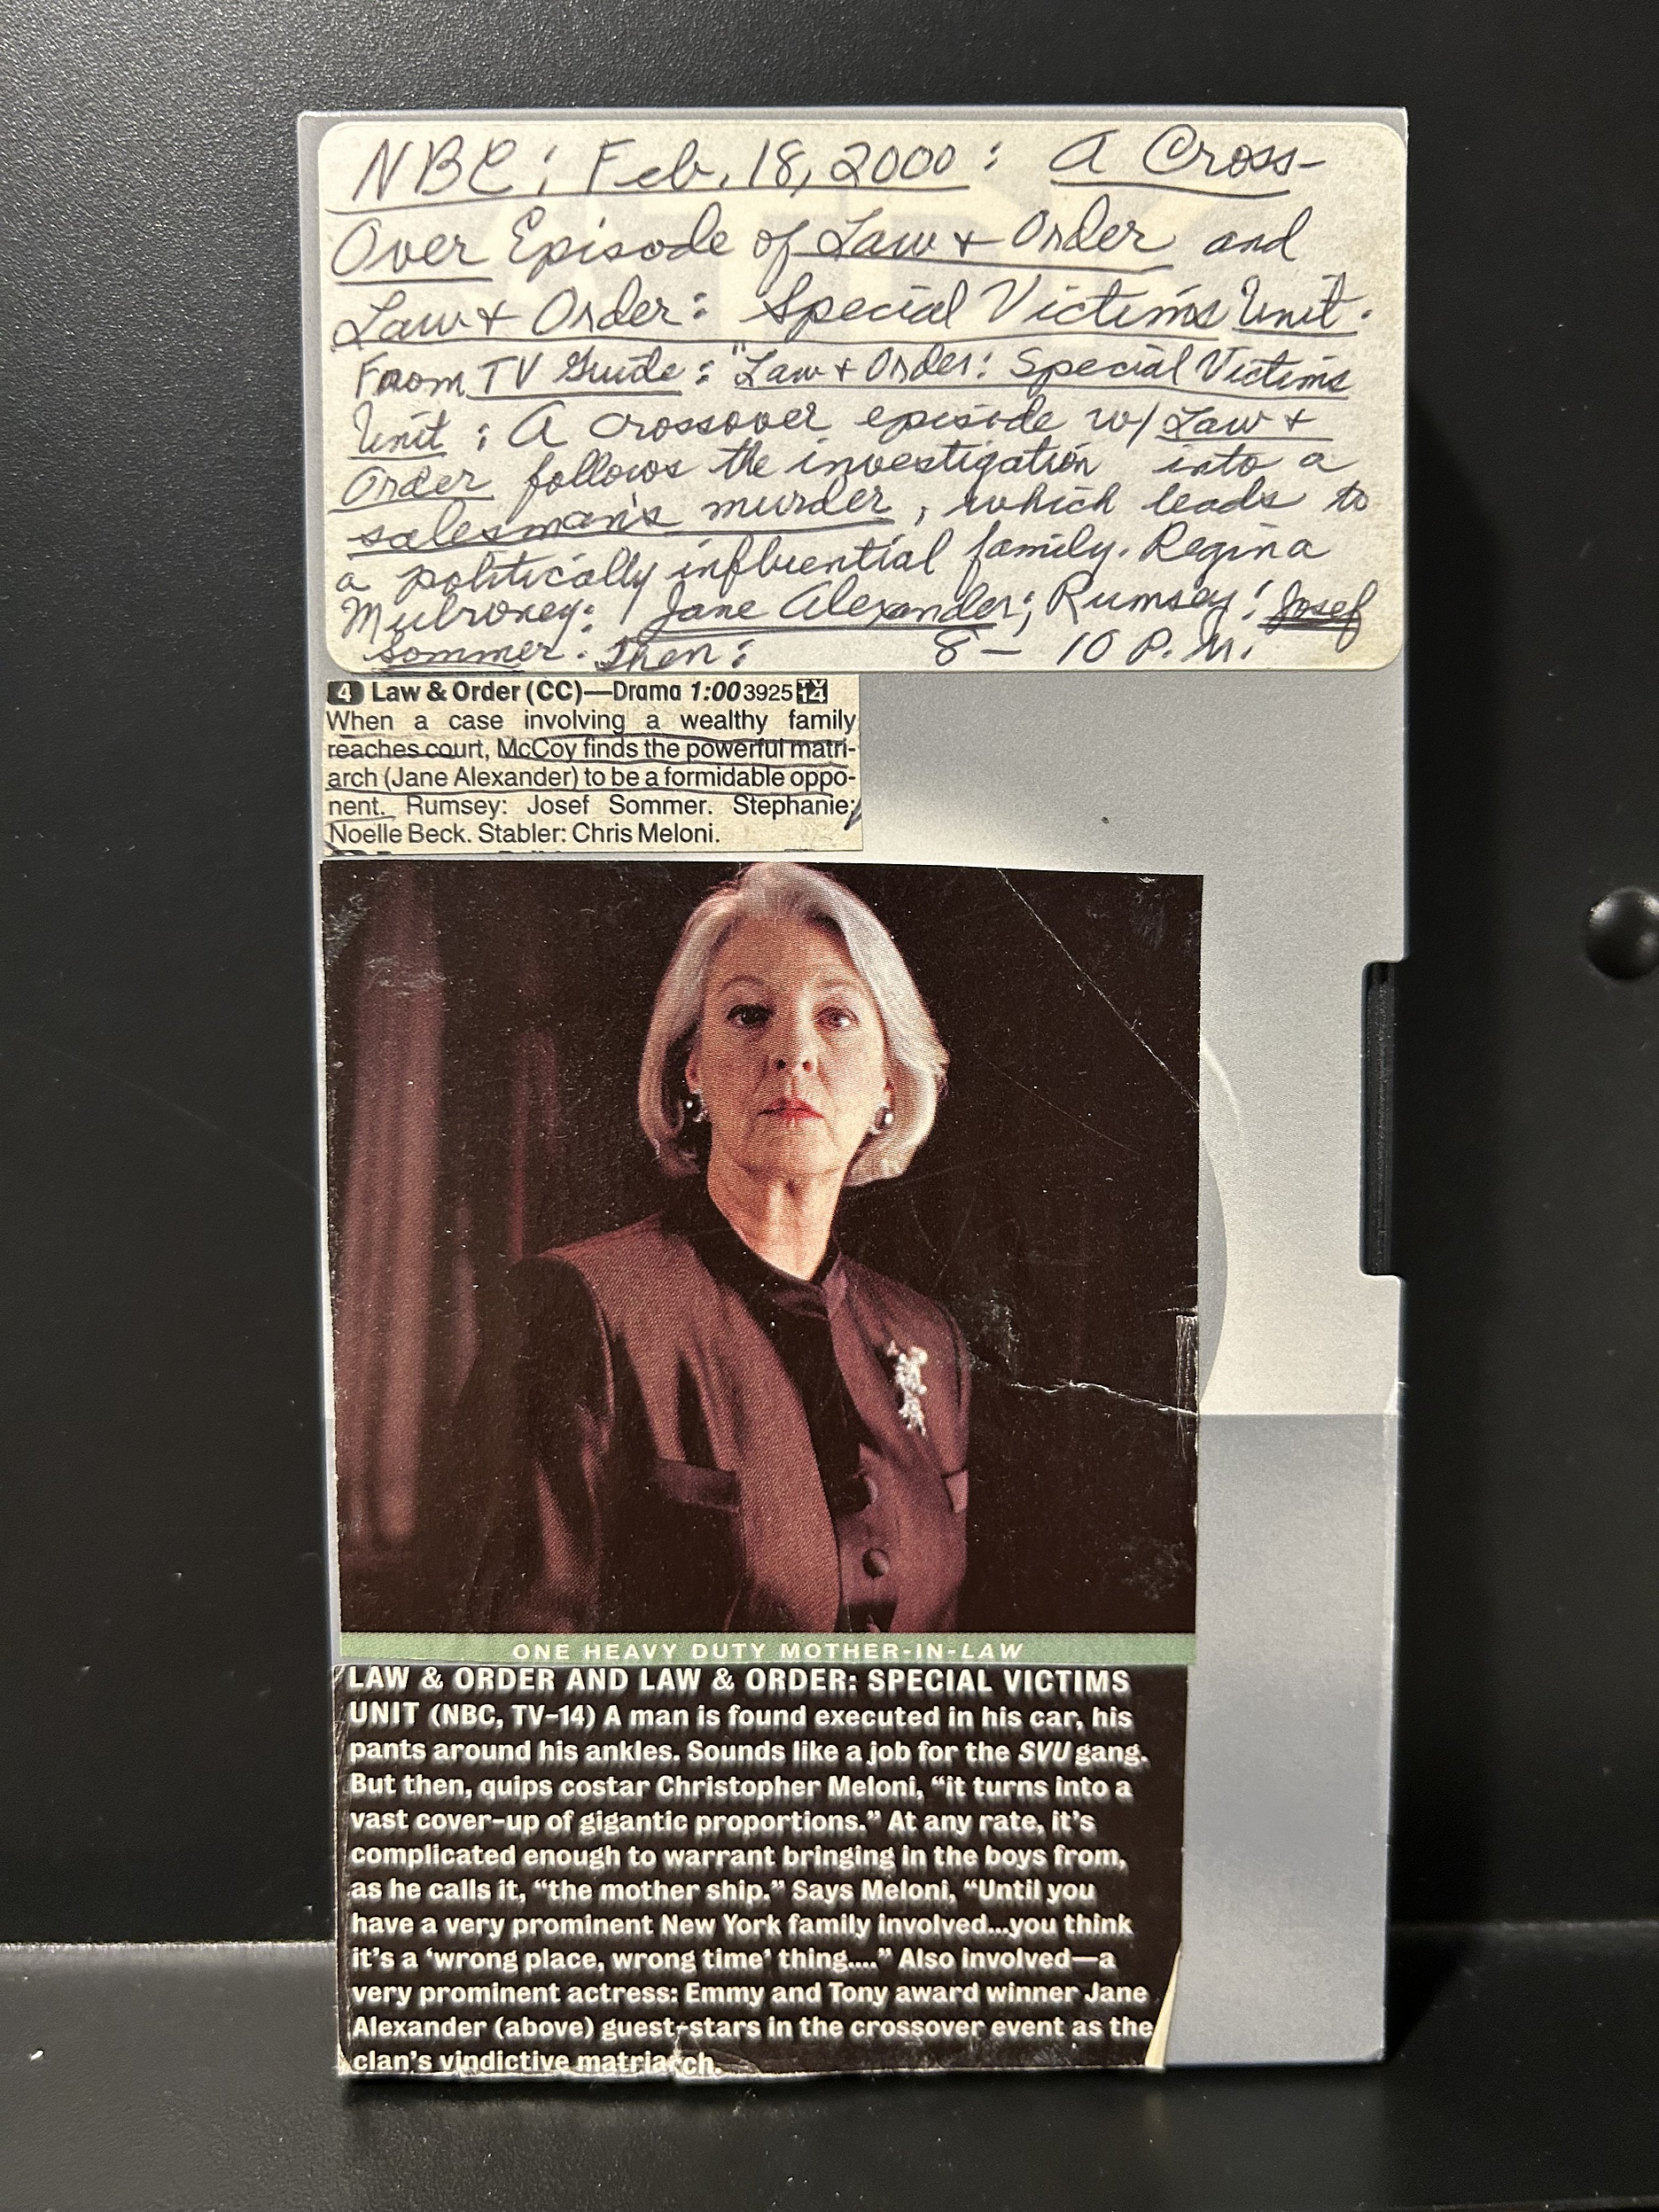 NBC: Feb. 18, 2000: A Cross-
Over Episode of Law & Order and
Law & Order: Special Victims Unit.
From TV Guide: "Law & Order: Special Victims
Unit: A crossover episode w/ Law &
Order follows the investigation into a
salesman's murder, which leads to
a politically influential family. Regina
Mulroney: Jane Alexander; Rumsey: Josef
Sommer. Then: 8 – 10 P.M.
4 Law & Order (CC)—Drama 1:00 3925 TV 14
When a case involving a wealthy family
reaches court, McCoy finds the powerful matri-
arch (Jane Alexander) to be a formidable oppo-
nent. Rumsey: Josef Sommer. Stephanie:
Noelle Beck. Stabler: Chris Meloni.
ONE HEAVY DUTY MOTHER-IN-LAW
LAW & ORDER AND LAW & ORDER: SPECIAL VICTIMS
UNIT (NBC, TV-14) A man is found executed in his car, his
pants around his ankles. Sounds like a job for the SVU gang.
But then, quips costar Christopher Meloni, “it turns into a
vast cover-up of gigantic proportions.” At any rate, it’s
complicated enough to warrant bringing in the boys from,
as he calls it, “the mother ship.” Says Meloni, “Until you
have a very prominent New York family involved...you think
it’s a ‘wrong place, wrong time’ thing....” Also involved—a
very prominent actress: Emmy and Tony award winner Jane
Alexander (above) guest-stars in the crossover event as the
clan’s vindictive matriarch.